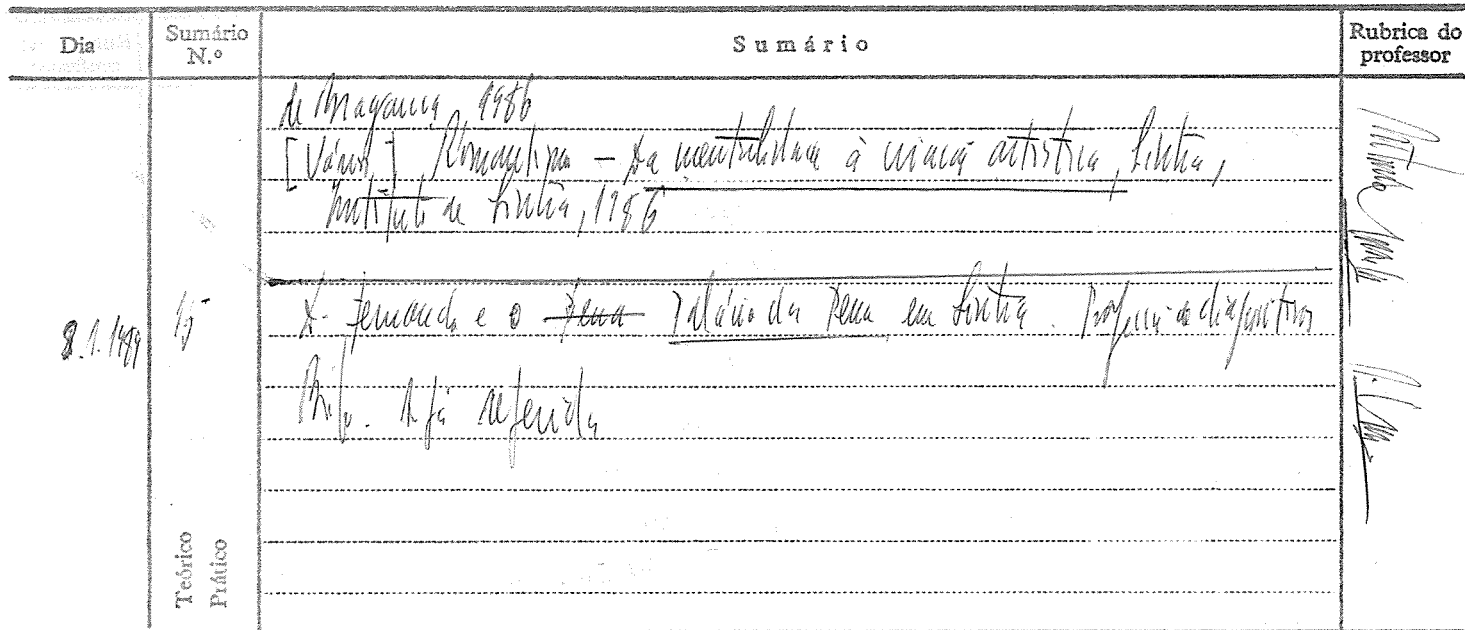 Dia
Sumário N.º
Sumário
Rubrica do professor
de Bragança, 1986
[Vários], Romantismo – Da mentalidade à criação artística, Sintra,
Instituto de Sintra, 1986
8.1.1989
15
D. Fernando e o Pena Palácio da Pena em Sintra. Projecção de diapositivos
Bibl. A já referida
Teórico
Prático